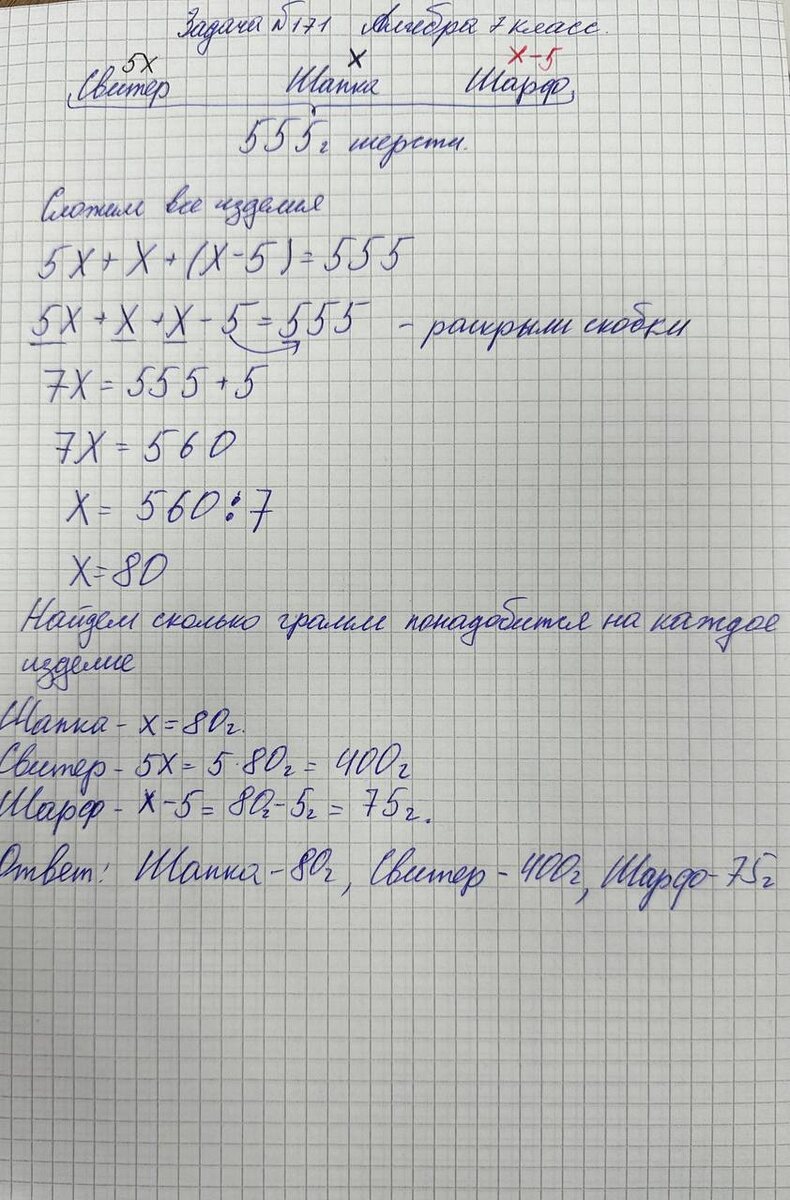 Задача №171 Алгебра 7 класс.
5x x x-5
Свитер Шапка Шарф
555г шерсти.
Сложим все изделия
5x + x + (x-5) = 555
5x + x + x - 5 = 555 - раскрыли скобки
7x = 555 + 5
7x = 560
x = 560 : 7
x = 80
Найдем сколько грамм понадобится на каждое
изделие
Шапка - x = 80г.
Свитер - 5x = 5·80г = 400г
Шарф - x-5 = 80г-5г = 75г.
Ответ: Шапка-80г, Свитер-400г, Шарф-75г